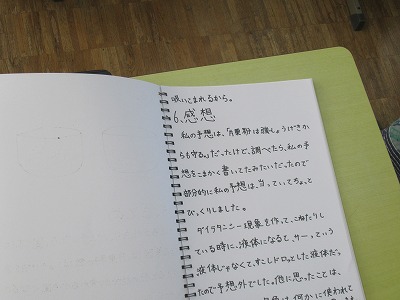 吸いこまれるから。
6.感想
私の予想は、「片栗粉は強しょうげきか
らも守る。」だったけど、調べたら、私の予
想をこまかく書いてたみたいだったので
部分的に私の予想は、当っていてちょっと
びっくりしました。
ダイラタンシー現象を作って、こねたりし
ている時に、液体になるで、サーっていう
液体じゃなくて、すこしドロッとした液体だっ
たので予想外でした。他に思ったことは、
何かに使われて